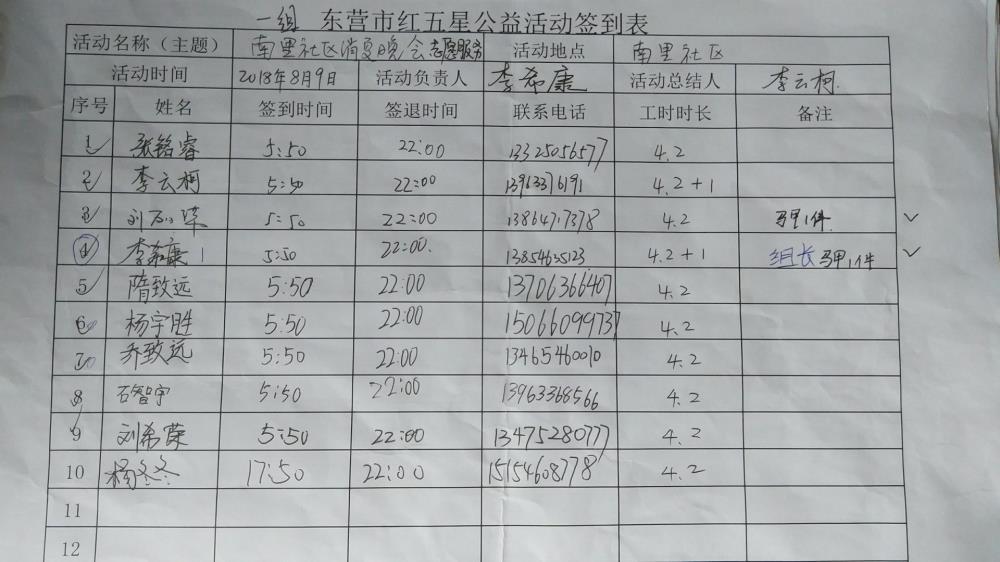 一组 东营市红五星公益活动签到表
活动名称（主题） 南里社区消夏晚会志愿服务 活动地点 南里社区
活动时间 2018年8月9日 活动负责人 李希康 活动总结人 李云柯
序号 姓名 签到时间 签退时间 联系电话 工时时长 备注
1 张铭睿 5:50 22:00 13325056577 4.2
2 李云柯 5:50 22:00 13963376191 4.2+1
3 5:50 22:00 13864717378 4.2 马甲1件
4 李希康 5:50 22:00. 13854635123 4.2+1 组长 马甲1件
5 隋致远 5:50 22:00 13706366407 4.2
6 杨宇胜 5:50 22:00 15066099737 4.2
7 乔致远 5:50 22:00 13465460010 4.2
8 石智宇 5:50 22:00 13963368566 4.2
9 刘希荣 5:50 22:00 13475280777 4.2
10 杨冬冬 17:50 22:00 15154608778 4.2
11
12